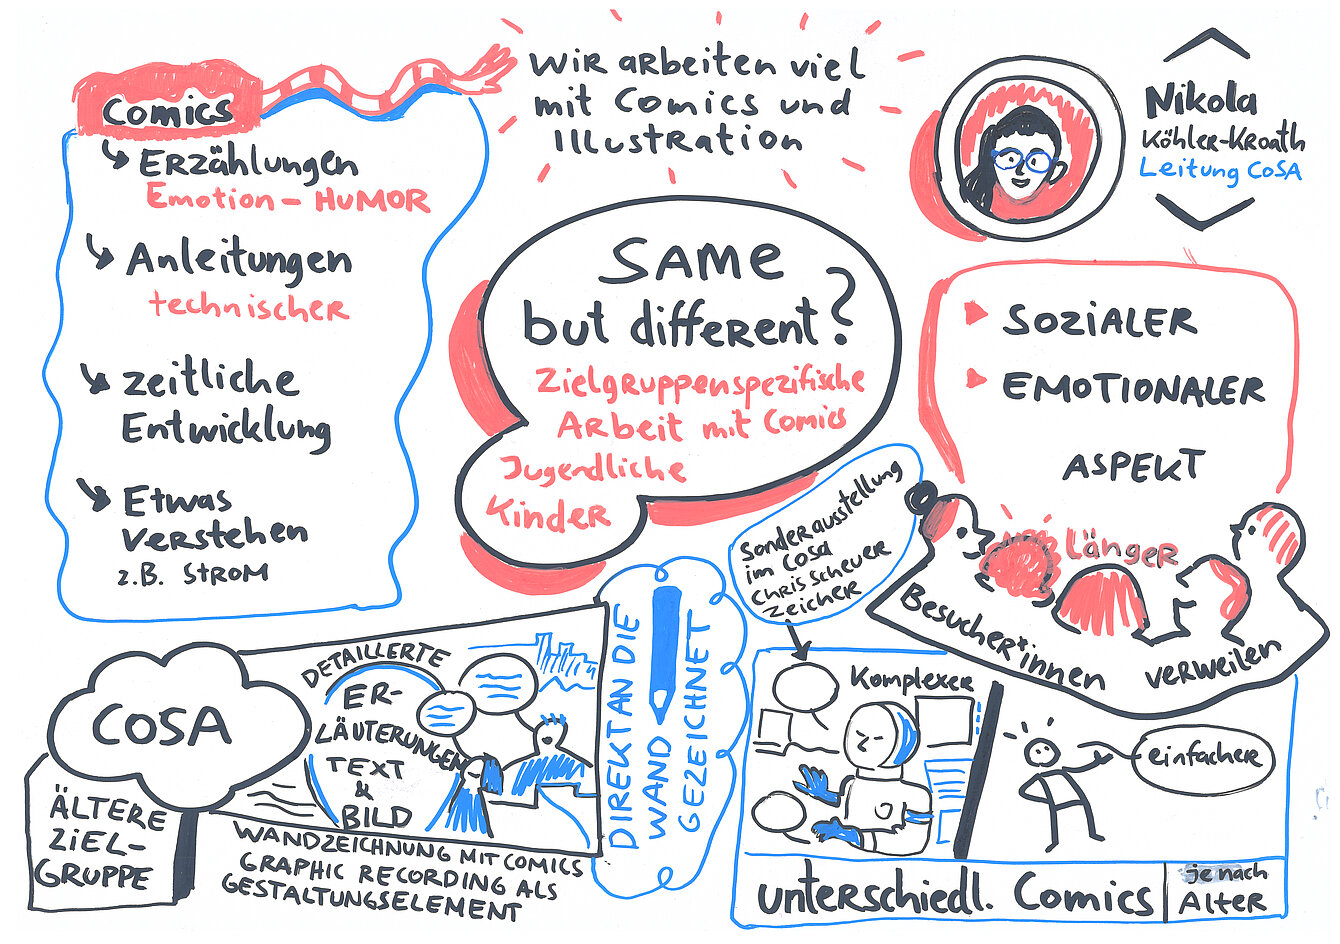 Wir arbeiten viel
mit Comics und
Illustration
Comics
Erzählungen
Emotion – HUMOR
Anleitungen
technischer
zeitliche
Entwicklung
Etwas
verstehen
z.B. STROM
SAME
but different?
Zielgruppenspezifische
Arbeit mit Comics
Jugendliche
Kinder
Nikola
Köhler-Kroath
Leitung CoSA
SOZIALER
EMOTIONALER
ASPEKT
Länger
Besucher*innen verweilen
Sonderausstellung
im CoSA
Chris Scheuer
Zeicher
COSA
ÄLTERE
ZIEL-
GRUPPE
DETAILLIERTE
ER-
LÄUTERUNGEN
TEXT
&
BILD
WANDZEICHNUNG MIT COMICS
GRAPHIC RECORDING ALS
GESTALTUNGSELEMENT
DIREKT AN DIE
WAND
GEZEICHNET
Komplexer
einfacher
unterschiedl. Comics
je nach
Alter